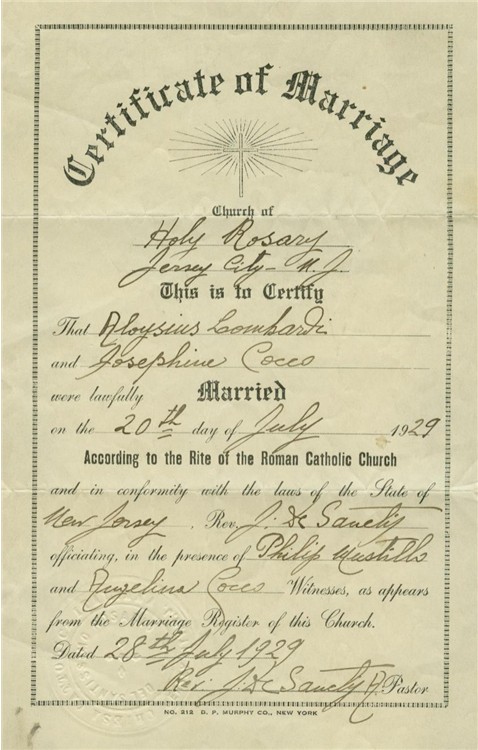 Certificate of Marriage
Church of
Holy Rosary
Jersey City - N. J.
This is to Certify
That Aloysius Lombardi
and Josephine Cocco
were lawfully Married
on the 20th day of July 1929
According to the Rite of the Roman Catholic Church
and in conformity with the laws of the State of
New Jersey. Rev. J. De Sanctis
officiating, in the presence of Philip Mustillo
and Angelina Cocco Witnesses, as appears
from the Marriage Register of this Church.
Dated 28th July 1929
Rev. J. De Sanctis Pastor
NO. 212 D. P. MURPHY CO., NEW YORK